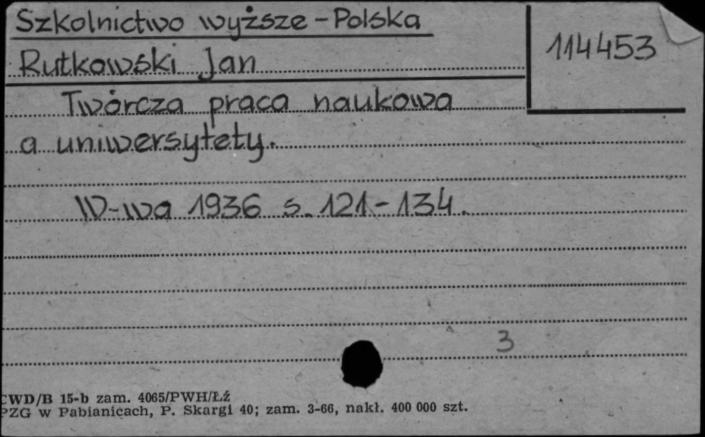 Szkolnictwo wyższe - Polska
114453
Rutkowski Jan
Twórcza praca naukowa
a uniwersytety.
W-wa 1936 s. 121-134.
3
CWD/B 15-b zam. 4065/PWH/Łź
PZG w Pabianicach, P. Skargi 40; zam. 3-66, nakł. 400 000 szt.